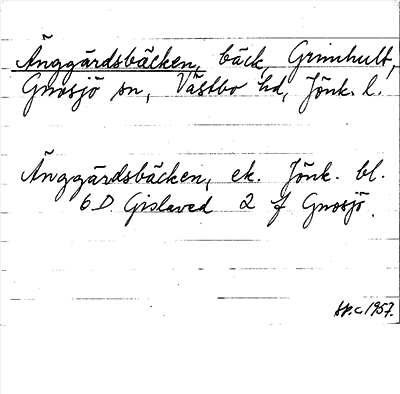 Änggärdsbäcken, bäck, Grimhult,
Gnosjö sn, Västbo hd, Jönk. l.
Änggärdsbäcken, ek. Jönk. bl.
6 D Gislaved 2 f Gnosjö.
1957.